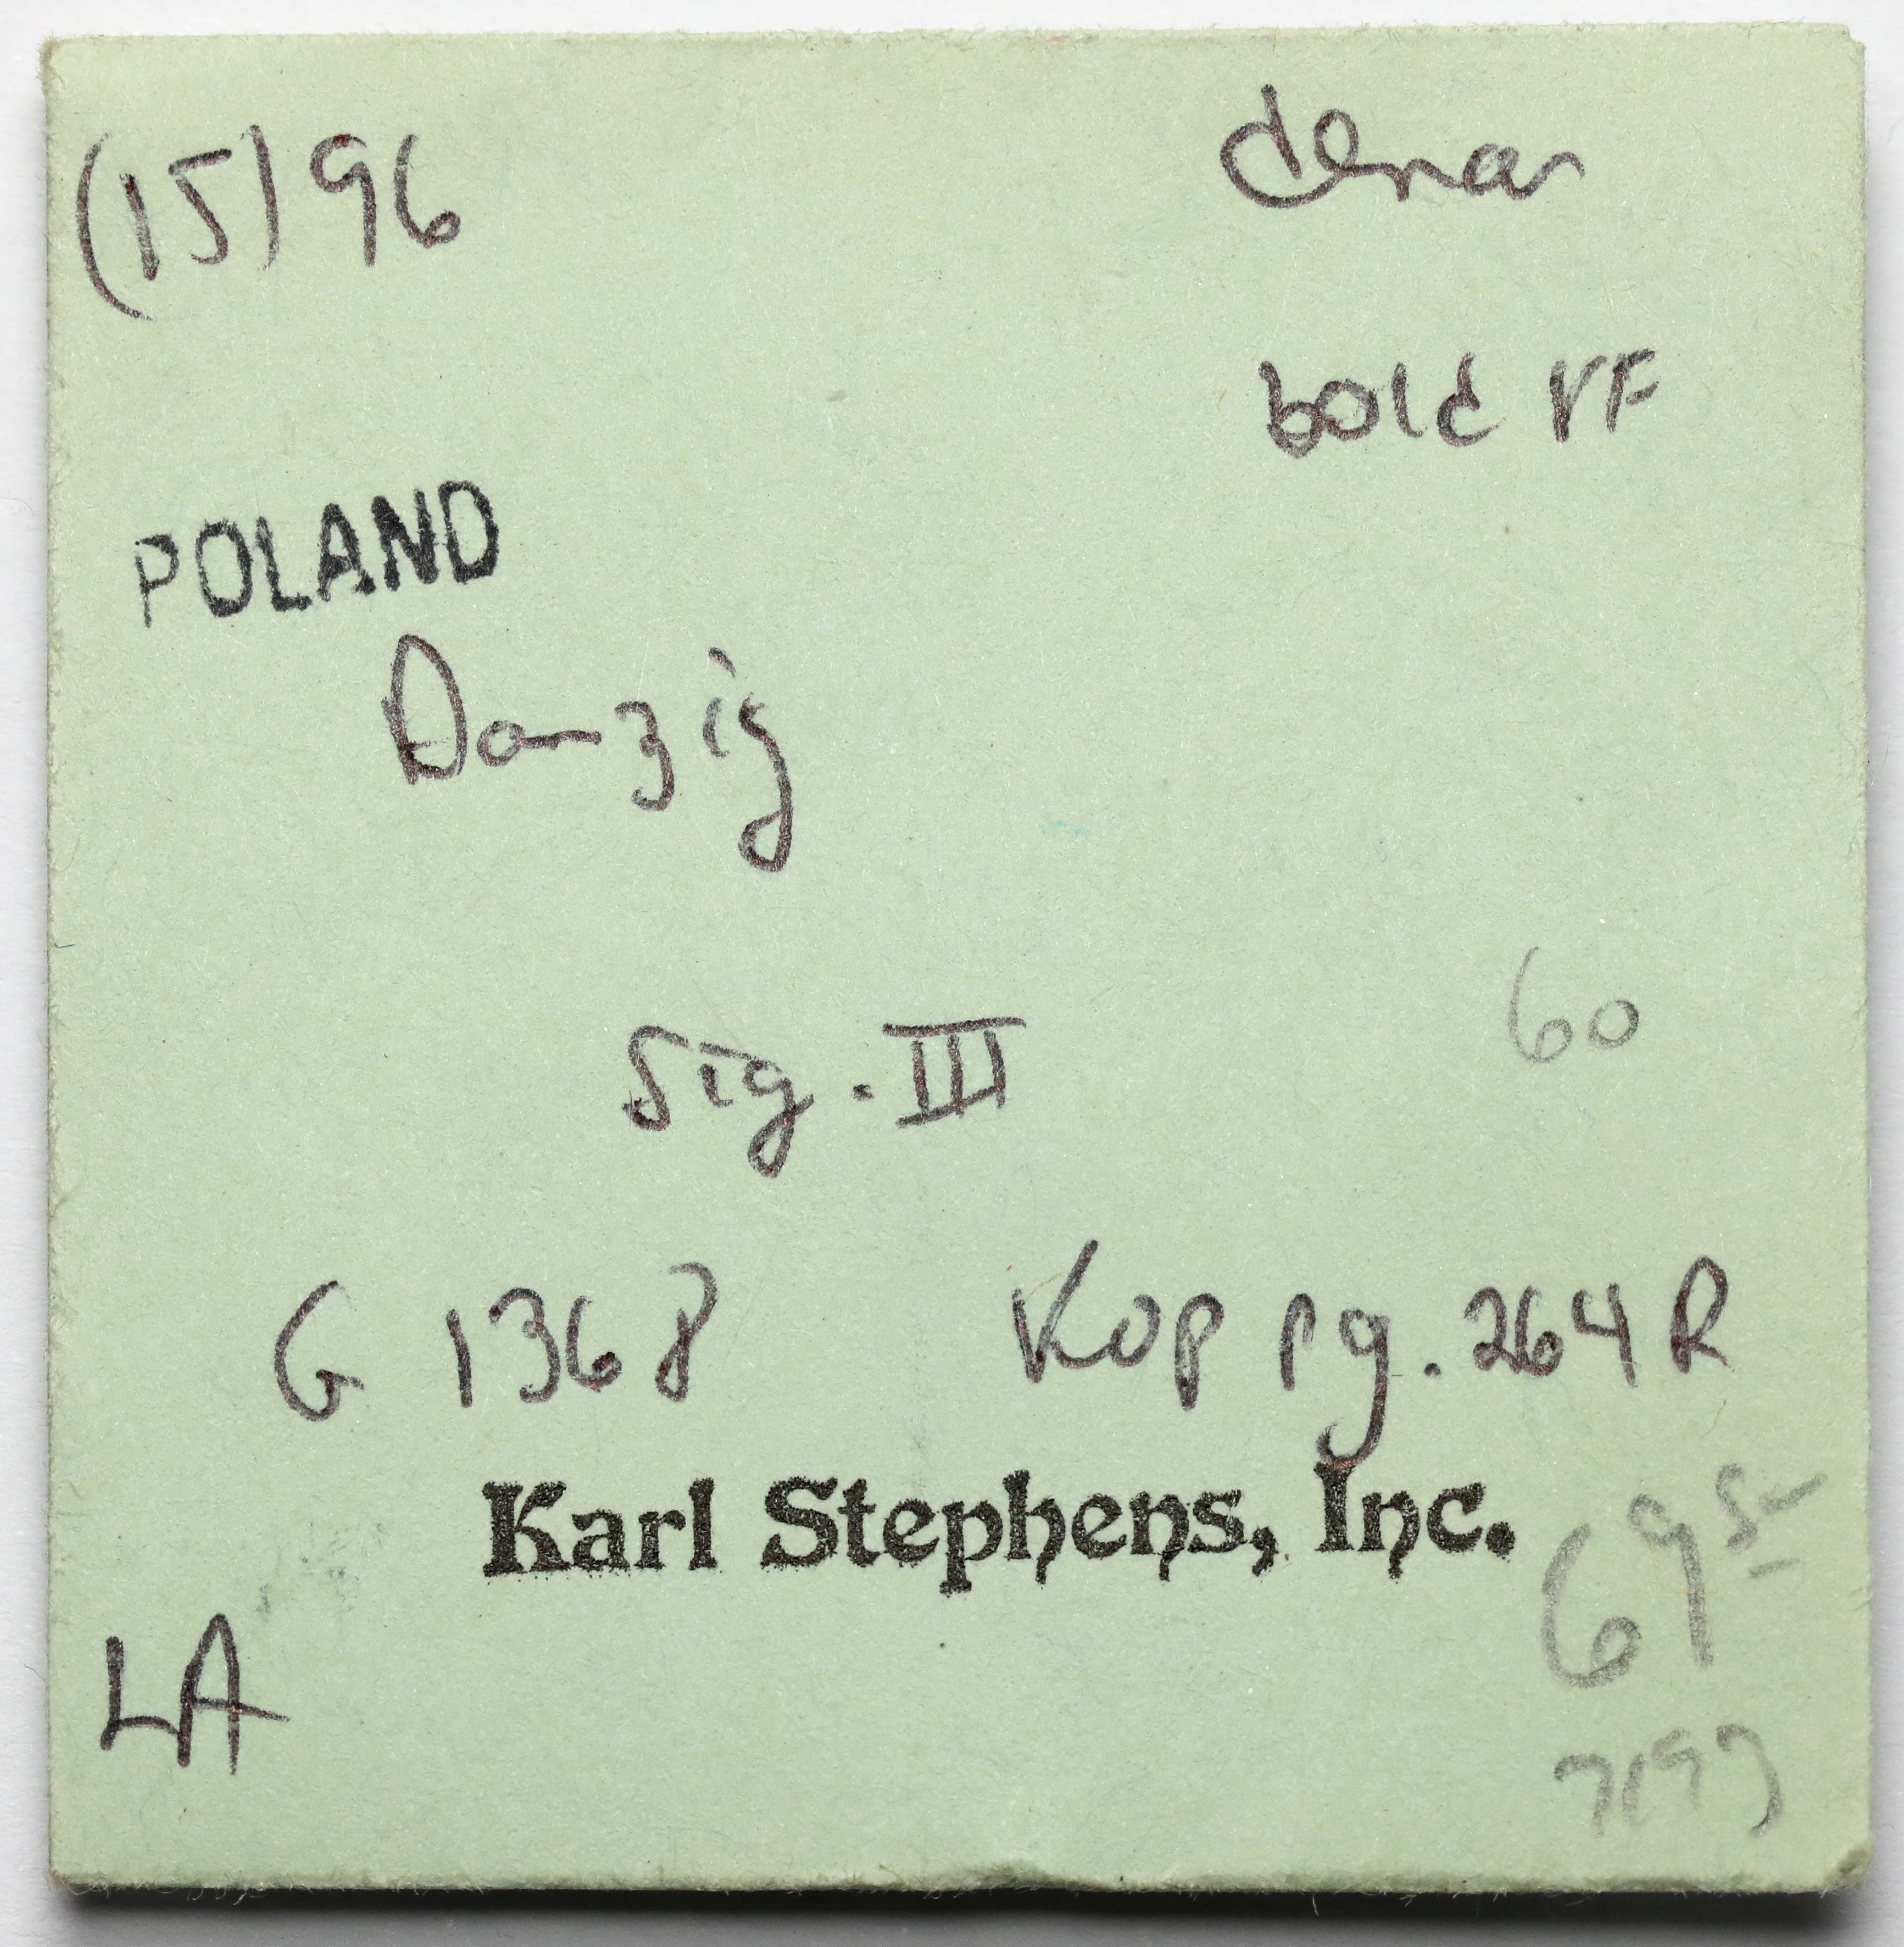 (15)96 denar
bold VF
POLAND
Danzig
60
Sig. III
G 1368 Kop pg. 264 R
Karl Stephens, Inc.
69 5-
LA